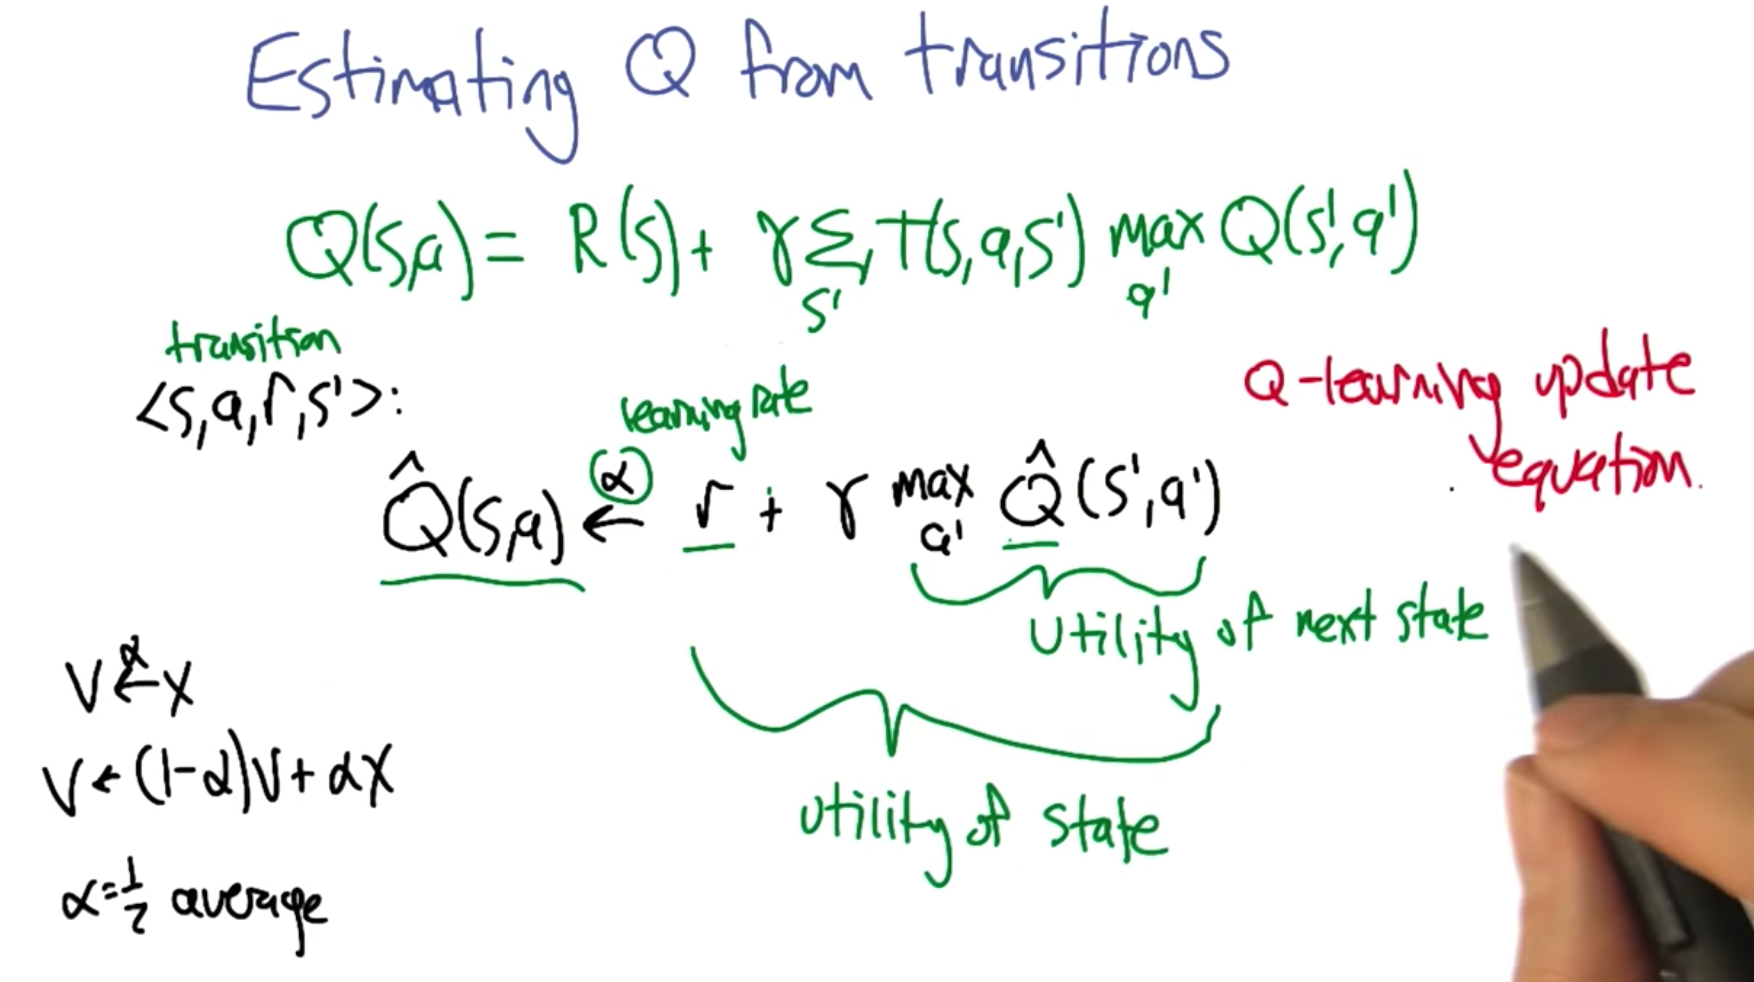 Estimating Q from transitions
Q(s,a) = R(s) + γ Σ T(s,a,s') max Q(s',a')
s' a'
transition
<s,a,r,s'>:
learning rate
Q-learning update
equation.
α
Q̂(s,a) ← r + γ max Q̂(s',a')
a'
utility of next state
utility of state
α
V ← X
V ← (1-α)V + αX
α=1/2 average